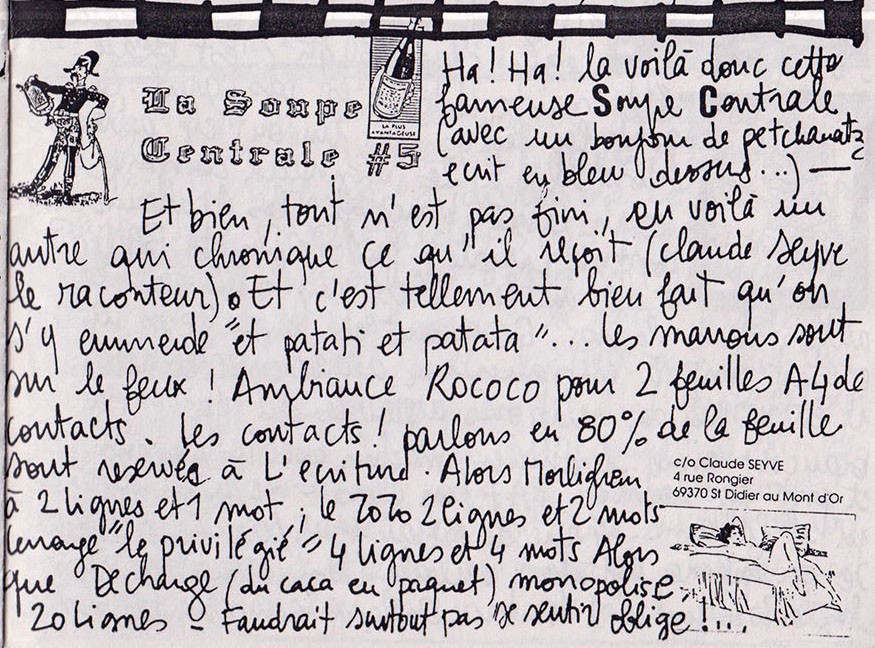 La Soupe
Centrale #5
LA PLUS
AVANTAGEUSE
Ha! Ha! la voilà donc cette
fameuse Soupe Centrale
(avec un bonjour de petchanatz
ecrit en bleu dessus...) —
Et bien, tout n'est pas fini, en voilà un
autre qui chronique ce qu'il reçoit (claude seyve
le raconteur). Et c'est tellement bien fait qu'on
s'y emmerde "et patati et patata"... les marrons sont
sur le feux! Ambiance Rococo pour 2 feuilles A4 de
contacts. les contacts! parlons en 80% de la feuille
sont reservée à L'ecriture. Alors Morlighem
à 2 lignes et 1 mot, le ZoZo 2 lignes et 2 mots
"le privilégié" = 4 lignes et 4 mots Alors
que Decharge (du caca en paquet) monopolise
20 lignes - Faudrait surtout pas se sentir oblige!...
c/o Claude SEYVE
4 rue Rongier
69370 St Didier au Mont d'Or